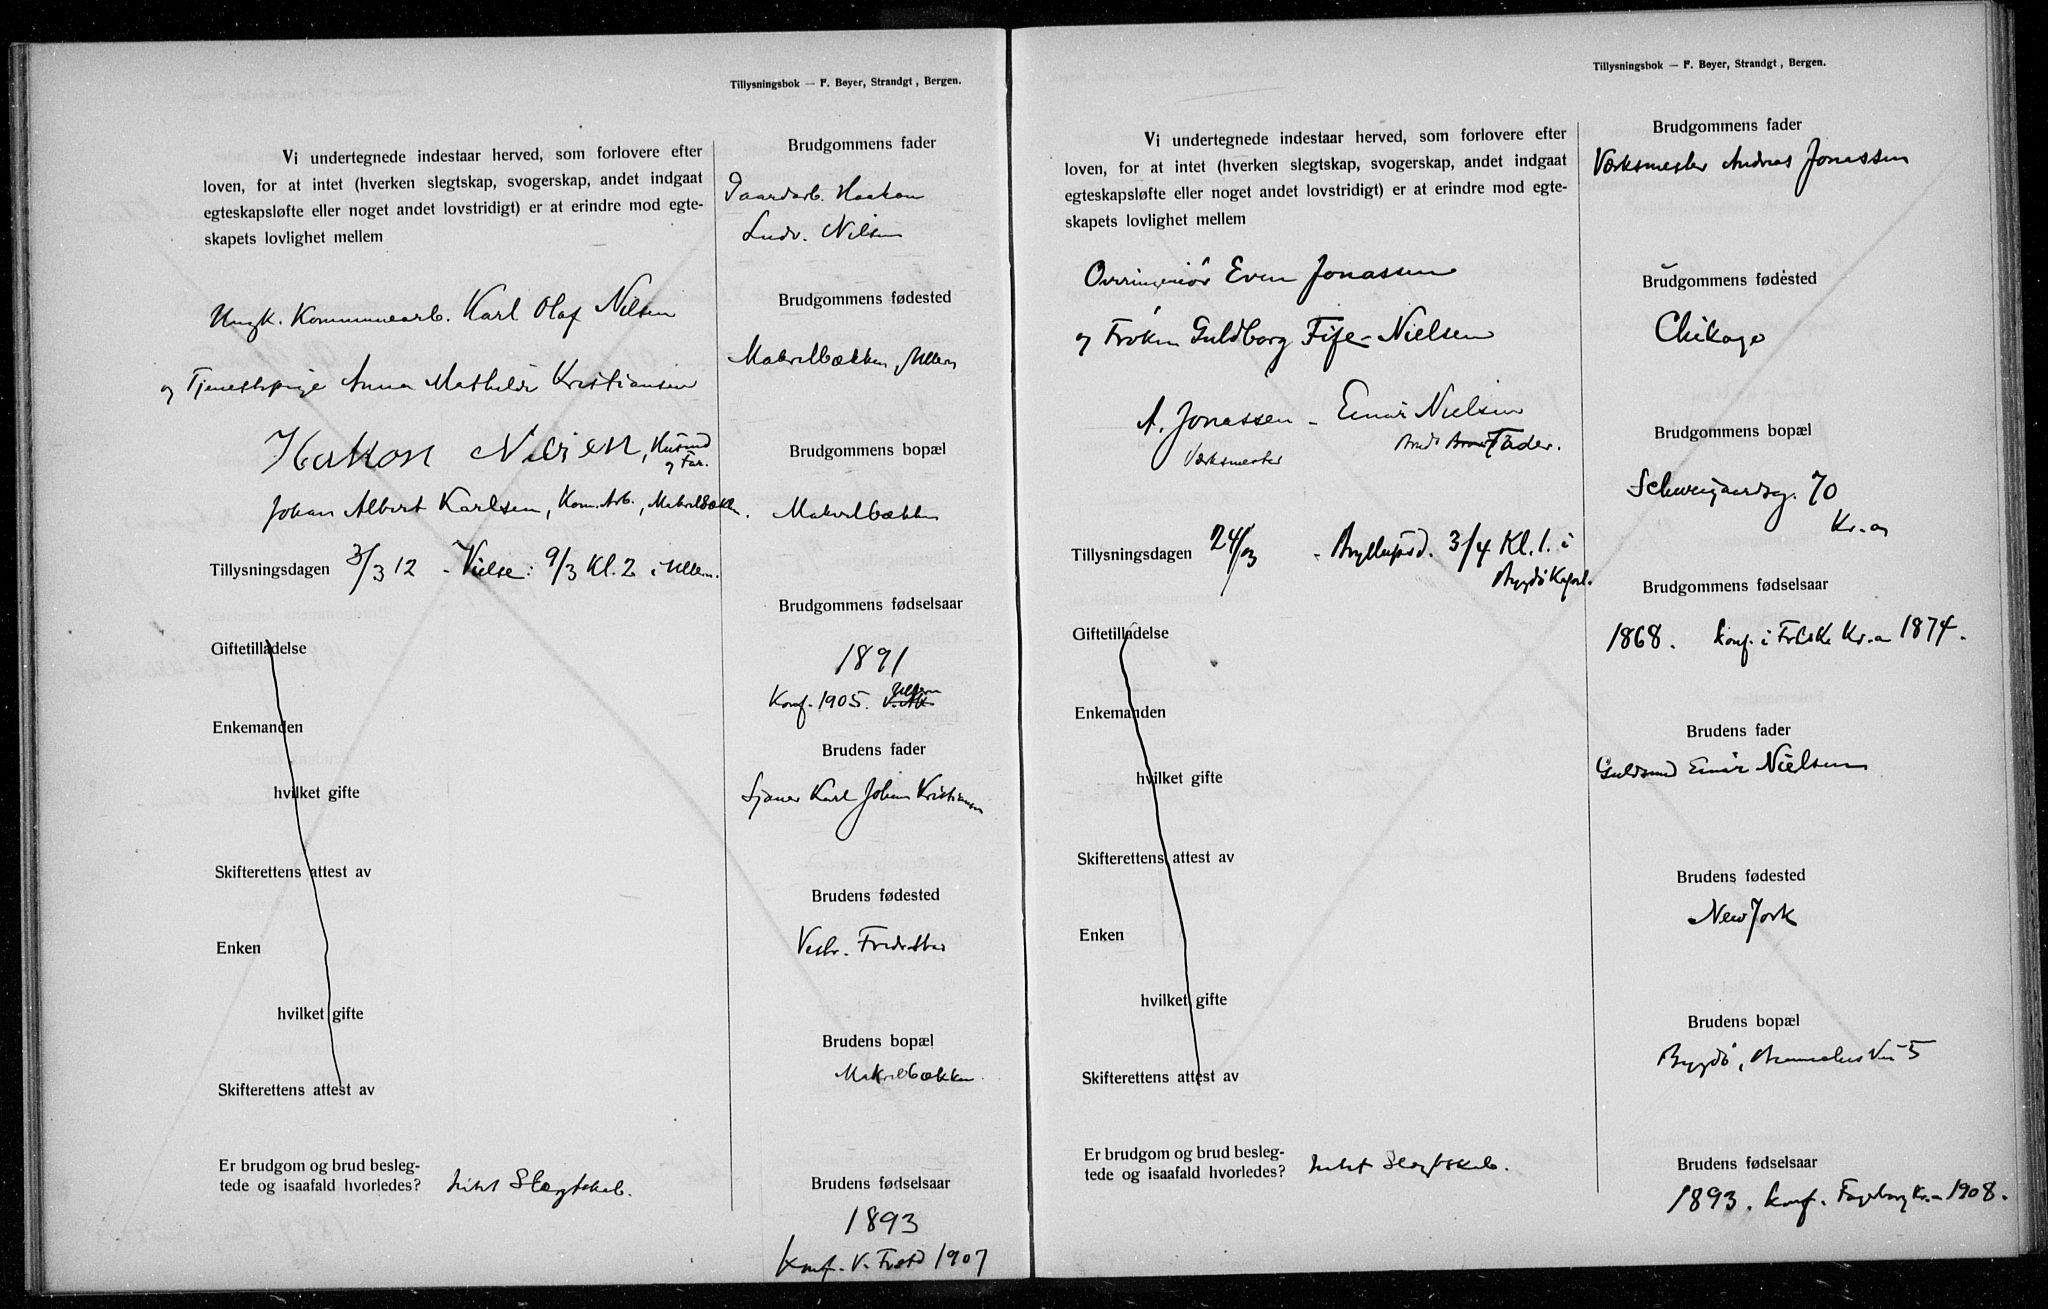 Tillysningsbok — F. Beyer, Strandgt , Bergen.
Vi undertegnede indestaar herved, som forlovere efter
loven, for at intet (hverken slegtskap, svogerskap, andet indgaat
egteskapsløfte eller noget andet lovstridigt) er at erindre mod egte-
skapets lovlighet mellem
Ungk. Kommunearb. Karl Olaf Nilsen
og Tjenestepige Anna Mathilde Kristiansen
Hakon Nilsen, Husmd
og Far.
Johan Albert Karlsen, Kom. Arb., Makrelbækk.
Tillysningsdagen 3/3 12 - Vielse: 9/3 Kl. 2 i Ullern.
Giftetilladelse
Enkemanden
hvilket gifte
Skifterettens attest av
Enken
hvilket gifte
Skifterettens attest av
Er brudgom og brud besleg-
tede og isaafald hvorledes? Intet Slegtskab.
Brudgommens fader
Gaardarb. Haakon
Ludv. Nilsen
Brudgommens fødested
Makrelbækken, Ullern
Brudgommens bopæl
Makrelbækken
Brudgommens fødselsaar
1891
Konf. 1905. Ullern
Brudens fader
Sjauer Karl Johan Kristiansen
Brudens fødested
Vestr. Fredrikstad
Brudens bopæl
Makrelbækken
Brudens fødselsaar
1893
Konf. V. Frstd 1907
Tillysningsbok — F. Beyer, Strandgt , Bergen.
Vi undertegnede indestaar herved, som forlovere efter
loven, for at intet (hverken slegtskap, svogerskap, andet indgaat
egteskapsløfte eller noget andet lovstridigt) er at erindre mod egte-
skapets lovlighet mellem
Overingeniör Even Jonassen
og Fröken Guldborg Fife-Nielsen
A. Jonassen - Einar Nielsen
Værksmester Fader.
Tillysningsdagen 24/3 - Bryllupsd. 3/4 Kl. 1. i
Bygdö Kapel.
Giftetilladelse
Enkemanden
hvilket gifte
Skifterettens attest av
Enken
hvilket gifte
Skifterettens attest av
Er brudgom og brud besleg-
tede og isaafald hvorledes? Intet Slegtskab.
Brudgommens fader
Værksmester Andreas Jonassen
Brudgommens fødested
Chikago
Brudgommens bopæl
Schweigaardsg. 70
Kr.a
Brudgommens fødselsaar
1868. konf. i Kr.a 1874.
Brudens fader
Guldsmd Einar Nielsen
Brudens fødested
New York
Brudens bopæl
Bygdö, Vei 5
Brudens fødselsaar
1893. konf. Fagerborg Kr.a 1908.